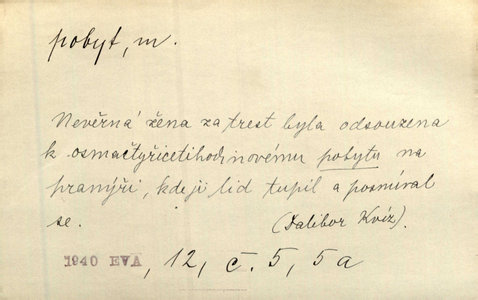 pobyt, m.
Nevěrná žena za trest byla odsouzena
k osmačtyřicetihodinovému pobytu na
pranýři, kde ji lid tupil a posmíval
se. (Dalibor Kvíz).
1940 EVA, 12, č. 5, 5a